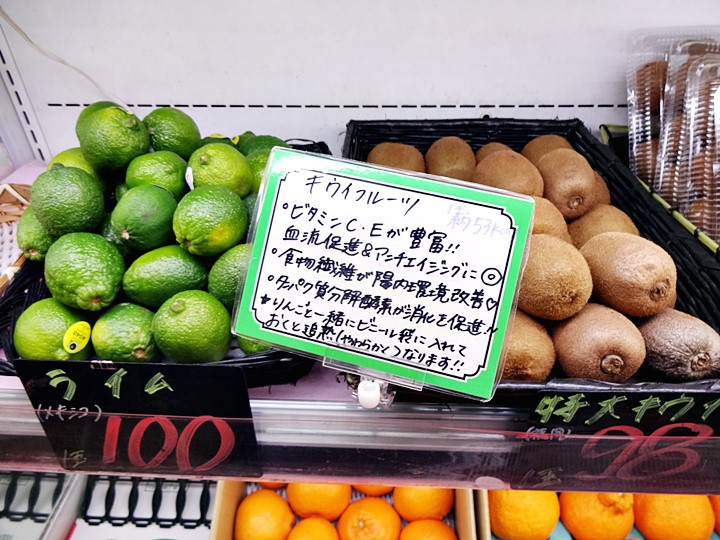 キウイフルーツ
約53kcal
°ビタミンC・Eが豊富!!
血流促進&アンチエイジングに◎
°食物繊維が腸内環境改善♡
°タンパク質分解酵素が消化を促進!
*りんごと一緒にビニール袋に入れて
おくと追熟(やわらかく)なります!!
ライム
(メキシコ)
100
特大キウイ
98